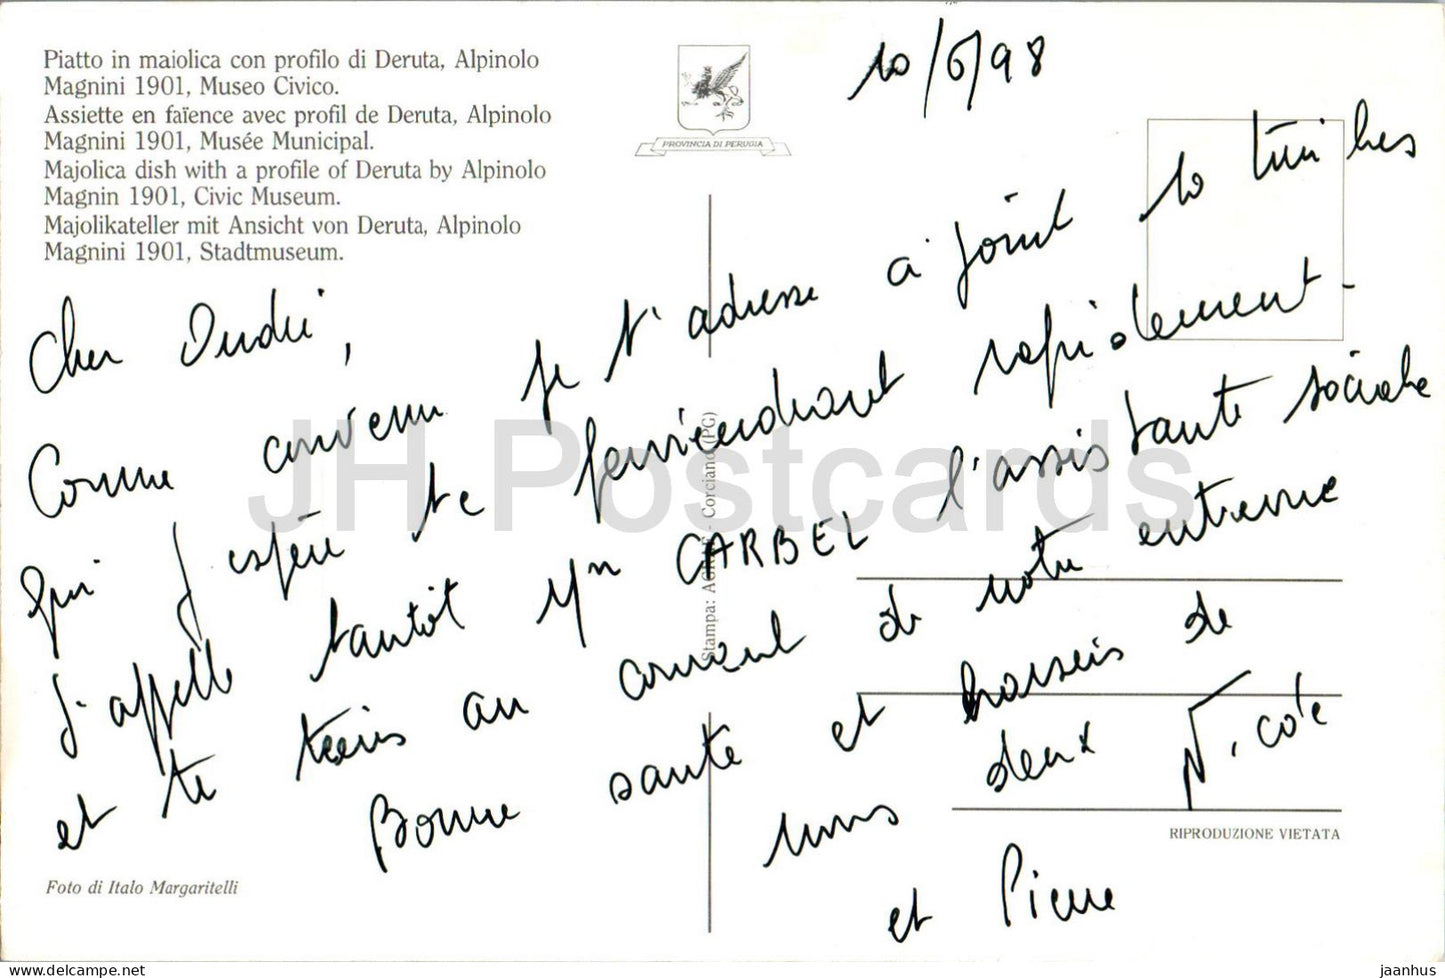 Piatto in maiolica con profilo di Deruta, Alpinolo
Magnini 1901, Museo Civico.
Assiette en faïence avec profil de Deruta, Alpinolo
Magnini 1901, Musée Municipal.
Majolica dish with a profile of Deruta by Alpinolo
Magnin 1901, Civic Museum.
Majolikateller mit Ansicht von Deruta, Alpinolo
Magnini 1901, Stadtmuseum.
PROVINCIA DI PERUGIA
10/6/98
Cher
Comme convenu je t'adresse ci joint 10 timbres
qui j'espère te parviendront rapidement -
J'appelle tantôt Mm CARBEL l'assistante sociale
et te tiens au courant de notre entrevue
Bonne santé et baisers de
nous deux Nicole
et Pierre
Stampa: - Corciano (PG)
RIPRODUZIONE VIETATA
Foto di Italo Margaritelli
JH Postcards
https://jhpostcards.com
jaanhus